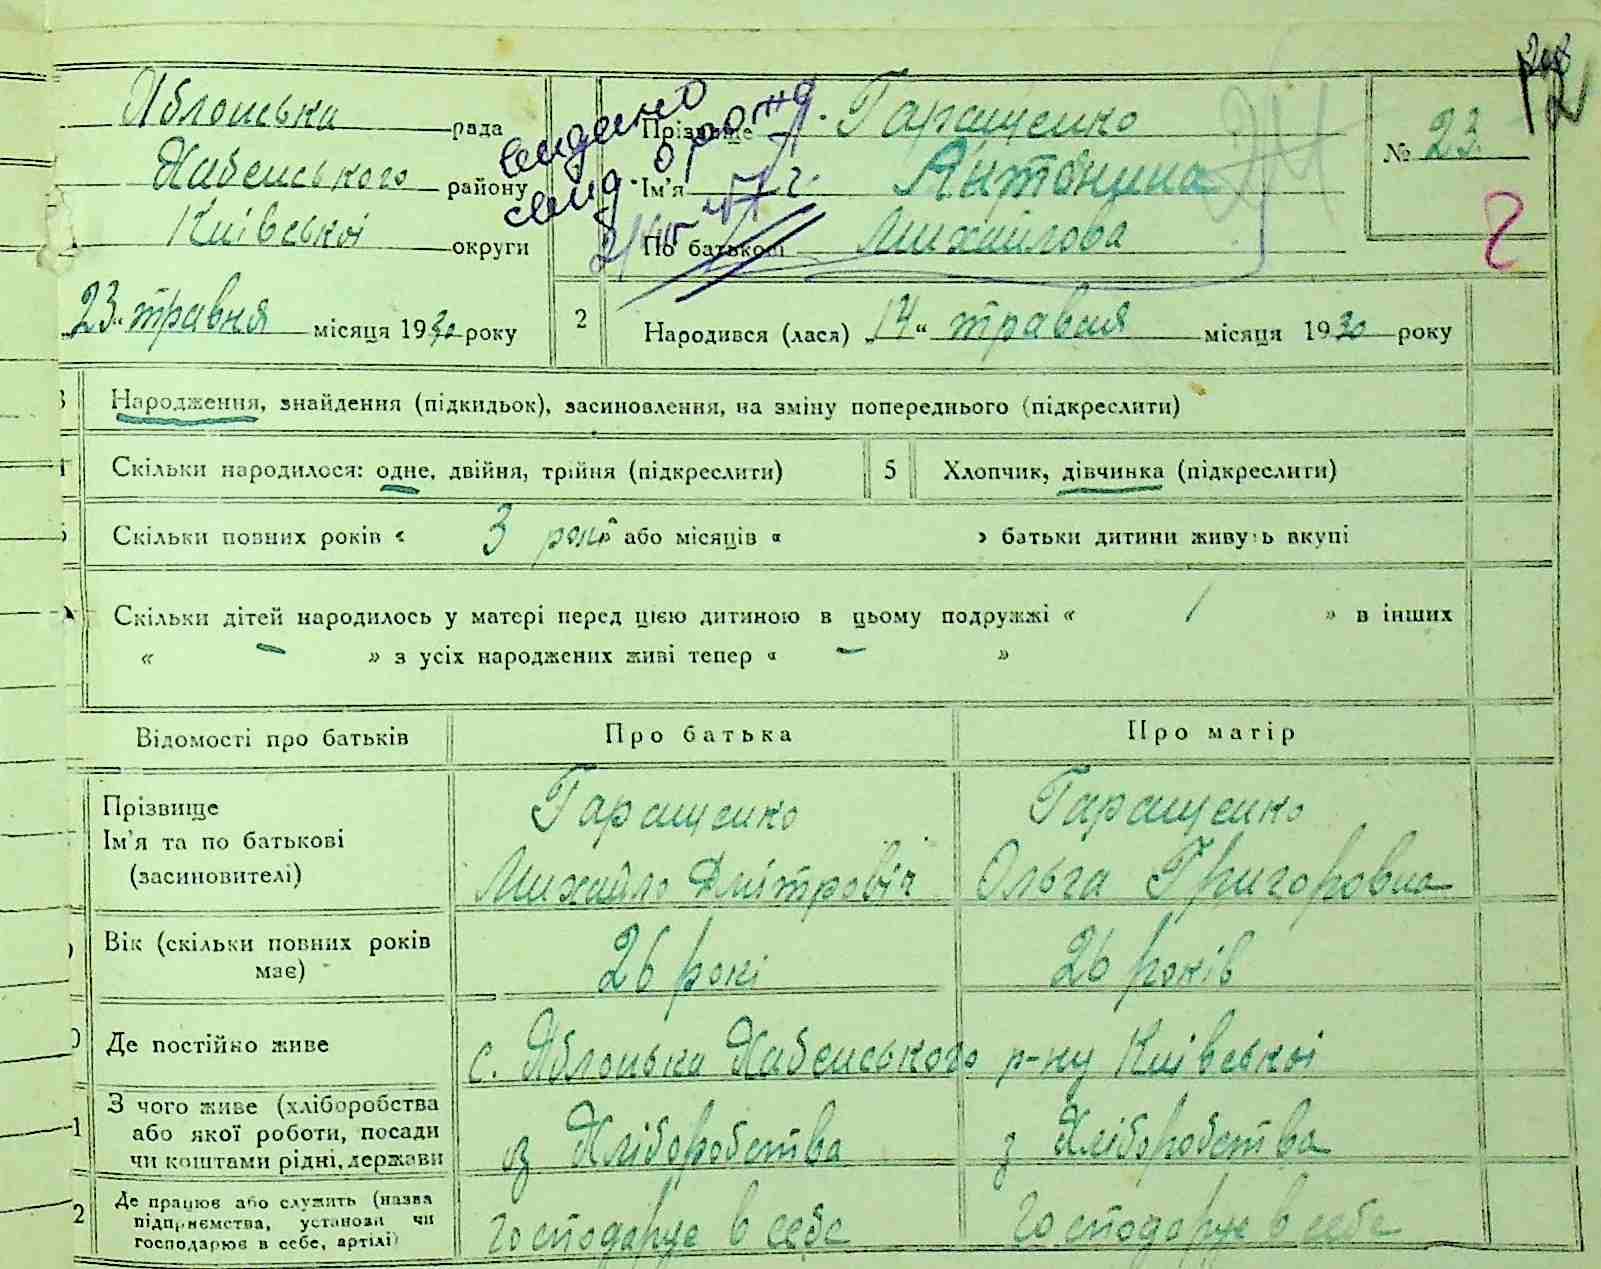 Яблонська рада
Хабенського району
Київської округи
„23“ травня місяця 1930 року
видано
свид. о рожд
Прізвище Гаращенко
Ім'я Антонина
По батькові Михайлова
№ 23
2
2 Народився (лася) „14“ травня місяця 1930 року
Народження, знайдення (підкидьок), засиновлення, на зміну попереднього (підкреслити)
Скільки народилося: одне, двійня, трійня (підкреслити)
5 Хлопчик, дівчинка (підкреслити)
Скільки повних років « 3 роки » або місяців « » батьки дитини живуть вкупі
Скільки дітей народилось у матері перед цією дитиною в цьому подружжі « 1 » в інших
« – » з усіх народжених живі тепер « – »
Відомості про батьків Про батька Про матір
Прізвище Гаращенко Гаращенко
Ім'я та по батькові Михайло Дмітровіч Ольга Григоровна
(засиновителі)
Вік (скільки повних років має) 26 рокі 26 років
Де постійно живе с. Яблонька Хабенського р-ну Київської
З чого живе (хліборобства
або якої роботи, посади
чи коштами рідні, держави з Хліборобства з Хліборобства
Де працює або служить (назва
підприємства, установи чи
господарює в себе, артілі) господарує в себе господарує в себе